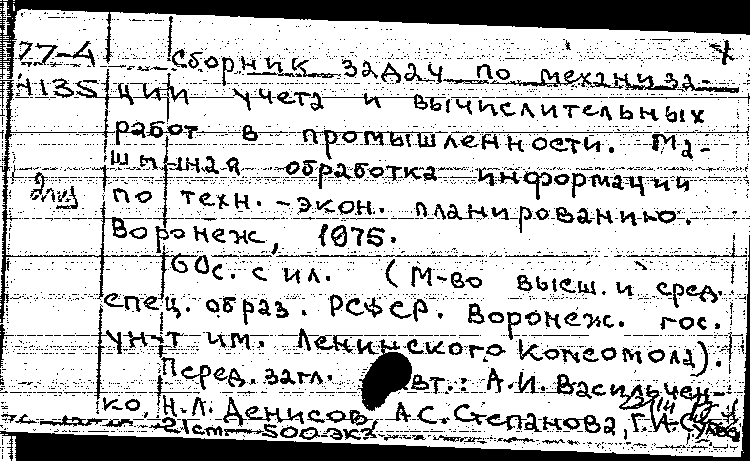 77-4 Сборник задач по механиза-
4135 ции учета и вычислительных
работ в промышленности. Ма-
шинная обработка информации
по техн.-экон. планированию.
Воронеж, 1975.
60с. с ил. (М-во высш. и сред.
спец. образ. РСФСР. Воронеж. гос.
ун-т им. Ленинского Комсомола).
Перед. загл. авт.: А.И. Васильчен-
ко, Н.Л. Денисов, А.С. Степанова, Г.И.
21см 500 экз.